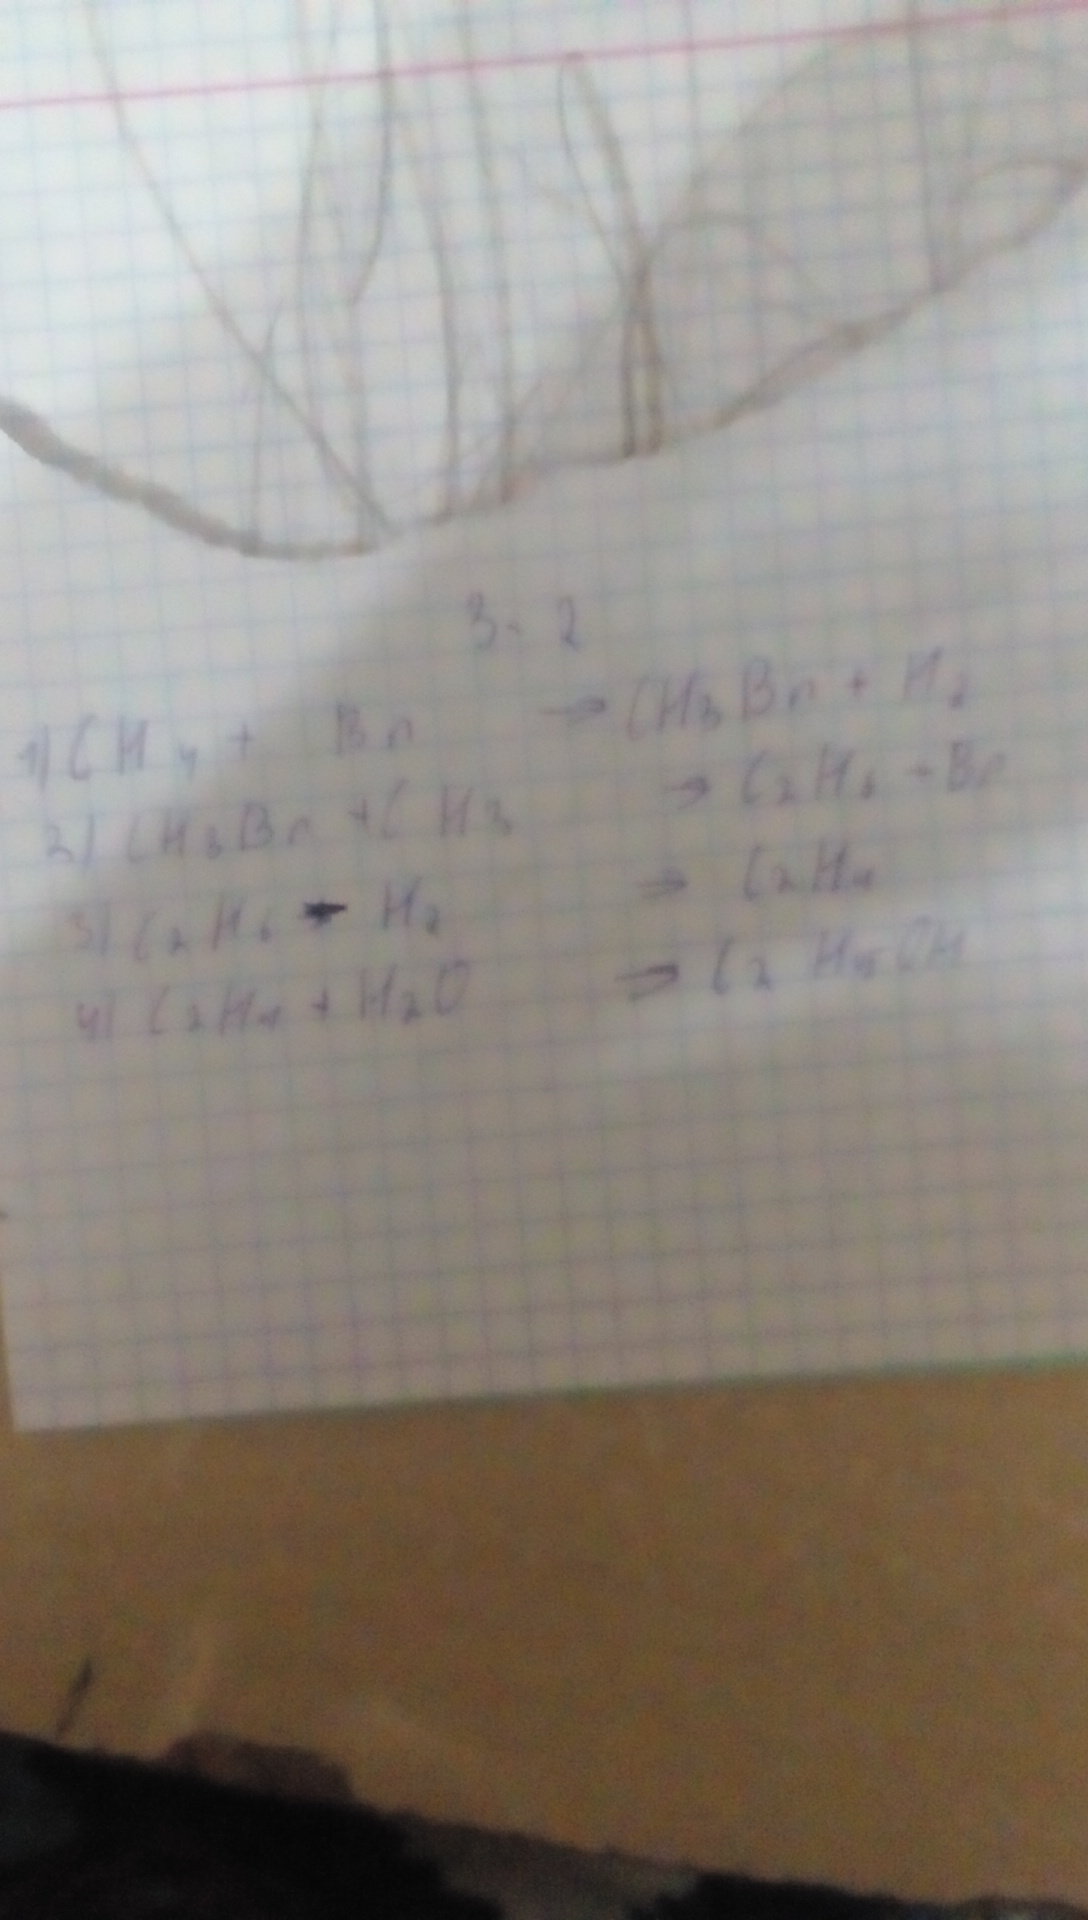 3-2
1) CH4 + Br → CH3Br + H2
2) CH3Br + CH3 → C2H6 + Br
3) C2H6 - H2 → C2H4
4) C2H4 + H2O → C2H5OH